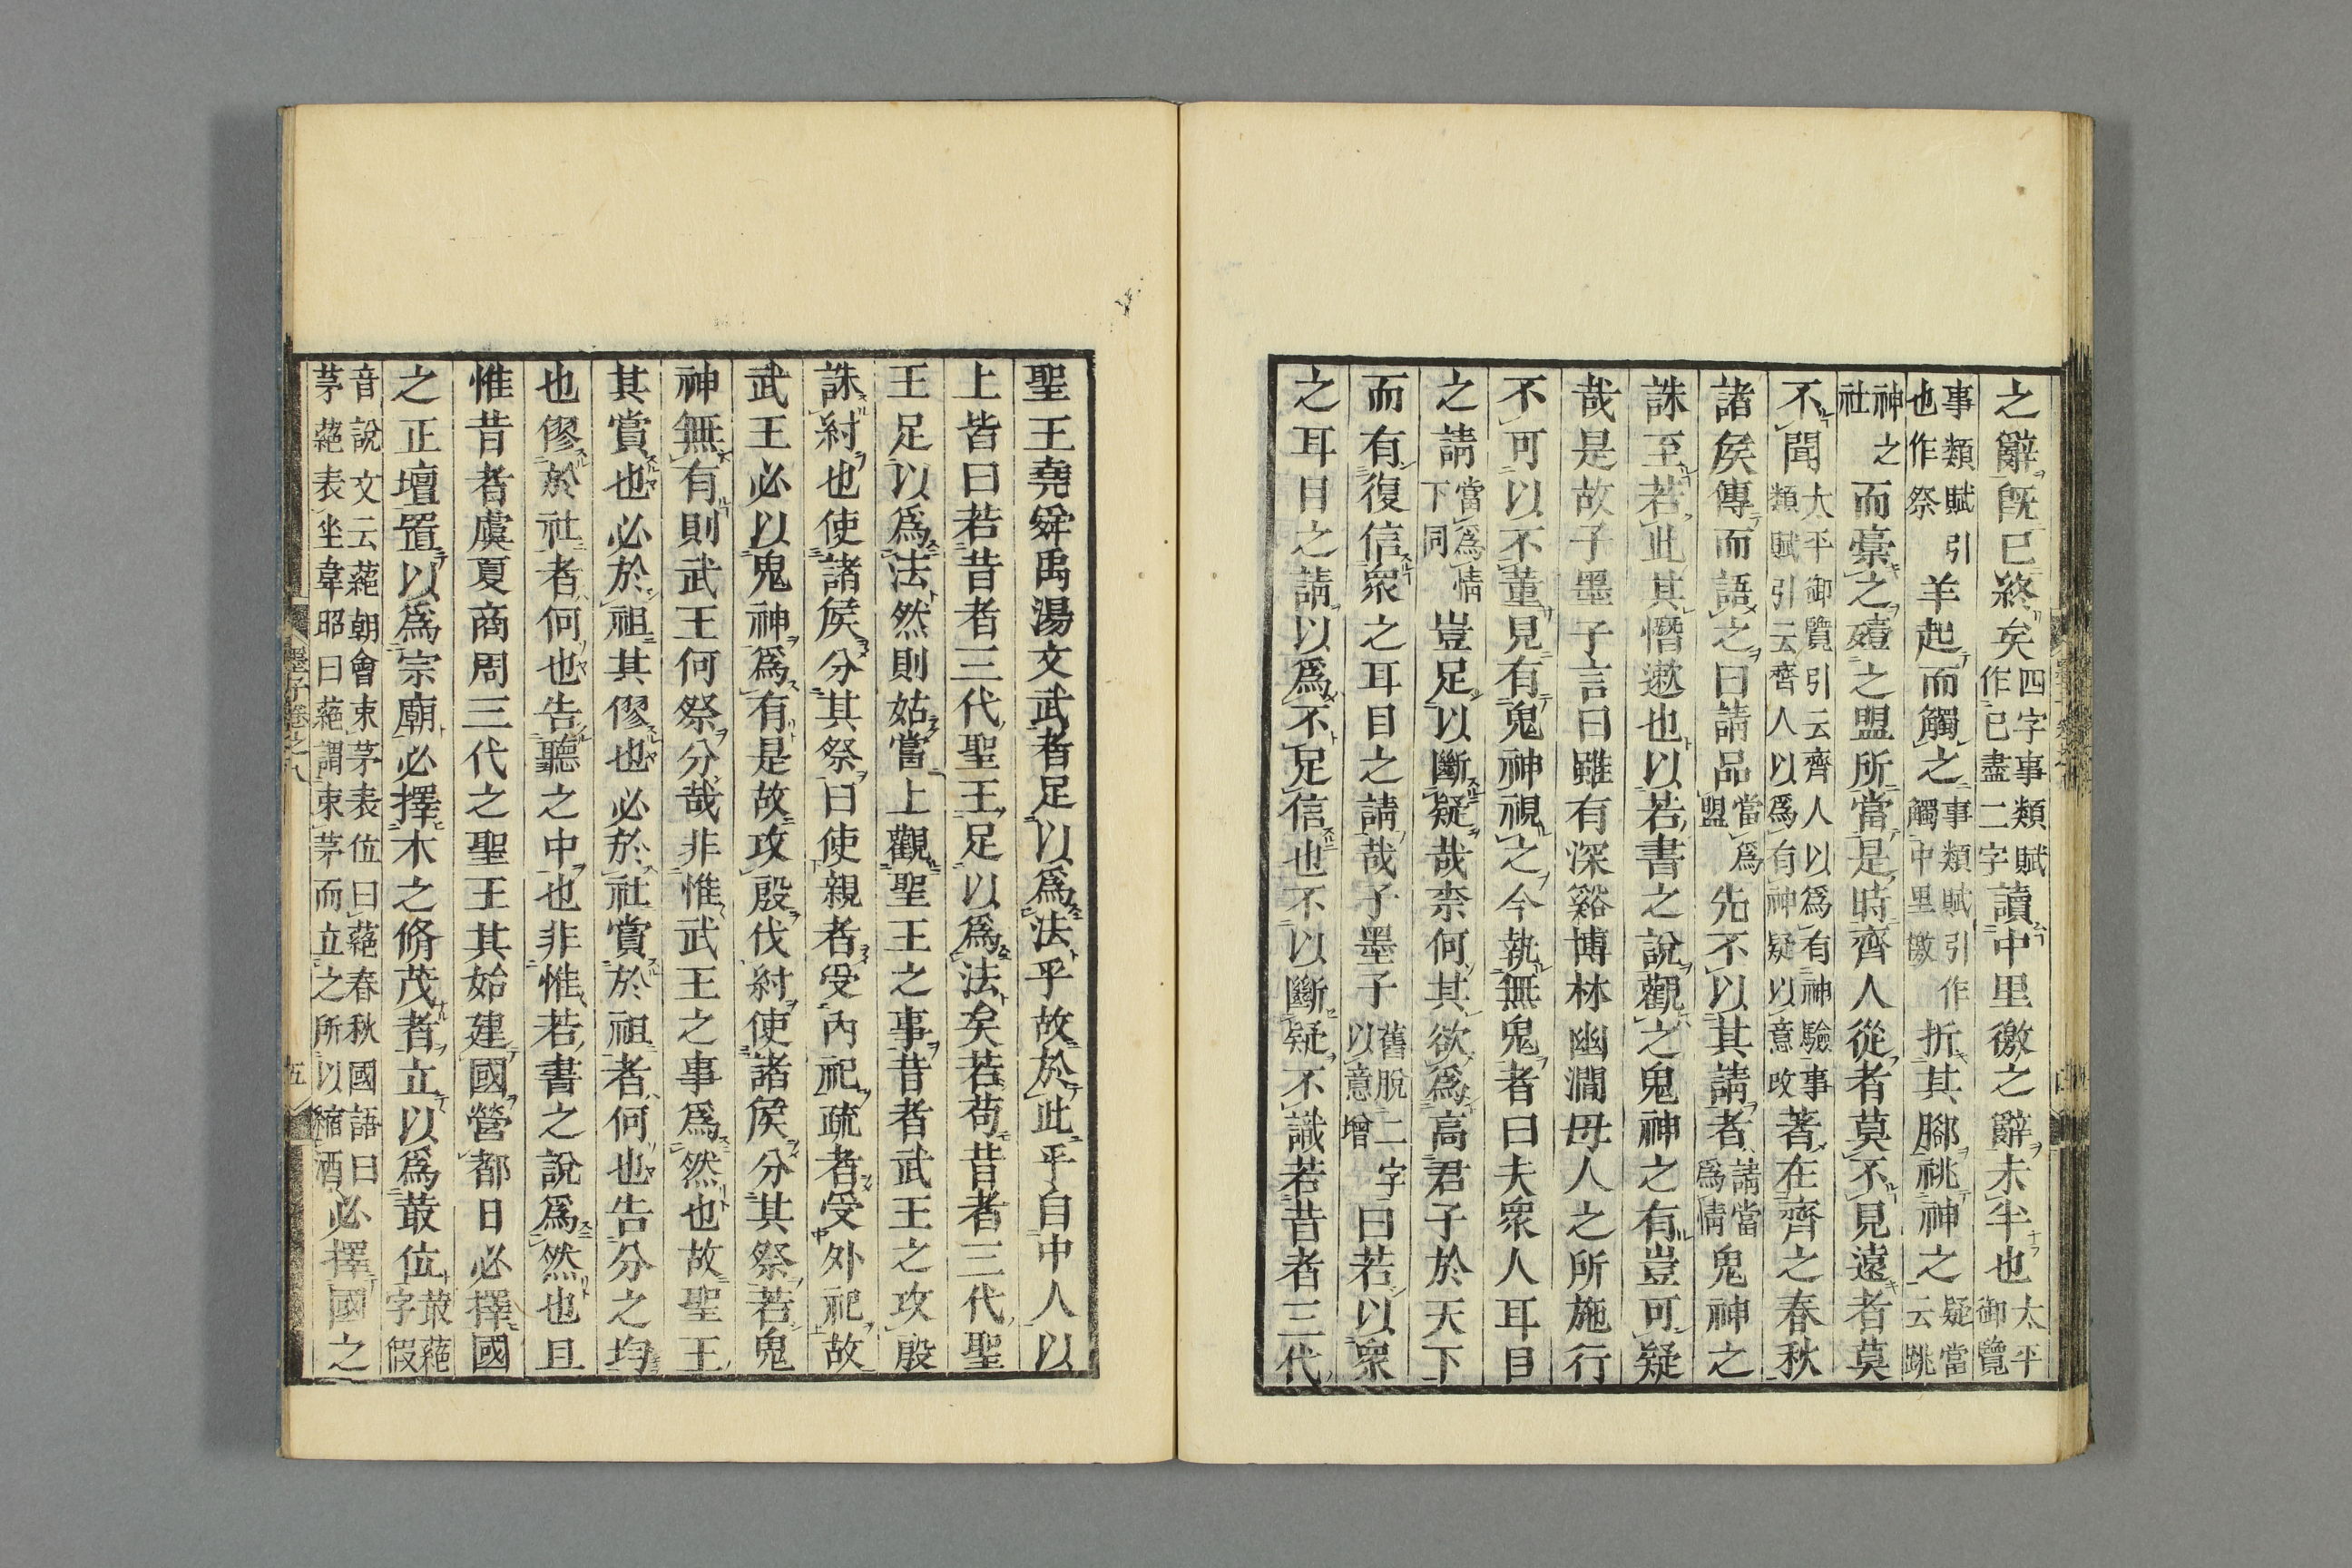 之辭既已終矣四字事類賦作已盡二字讀中里徼之辭未半也太平御覽
事類賦引也作祭羊起而觸之事類賦引作觸中里徼折其腳祧神之疑當云跳
神之社而槀之殪之盟所當是時齊人從者莫不見遠者莫
不聞太平御覽引云齊人以爲有神驗事類賦引云齊人以爲有神疑以意改著在齊之春秋
諸侯傳而語之曰請品當爲盟先不以其請者請當爲情鬼神之
誅至若此其憯遬也以若書之說觀之鬼神之有豈可疑
哉是故子墨子言曰雖有深谿博林幽澗毋人之所施行
不可以不董見有鬼神視之今執無鬼者曰夫衆人耳目
之請當爲情下同豈足以斷疑哉柰何其欲爲高君子於天下
而有復信衆之耳目之請哉子墨子舊脫二字以意增曰若以衆
之耳目之請以爲不足信也不以斷疑不識若昔者三代
聖王堯舜禹湯文武者足以爲法乎故於此乎自中人以
上皆曰若昔者三代聖王足以爲法矣若苟昔者三代聖
王足以爲法然則姑嘗上觀聖王之事昔者武王之攻殷
誅紂也使諸侯分其祭曰使親者受內祀疏者受外祀故
武王必以鬼神爲有是故攻殷伐紂使諸侯分其祭若鬼
神無有則武王何祭分哉非惟武王之事爲然也故聖王
其賞也必於祖其僇也必於社賞於祖者何也告分之均
也僇於社者何也告聽之中也非惟若書之說爲然也且
惟昔者虞夏商周三代之聖王其始建國營都日必擇國
之正壇置以爲宗廟必擇木之脩茂者立以爲菆位菆蕝字假
音說文云蕝朝會束茅表位曰蕝春秋國語曰茅蕝表坐韋昭曰蕝謂束茅而立之所以縮酒必擇國之
墨子卷之八
五